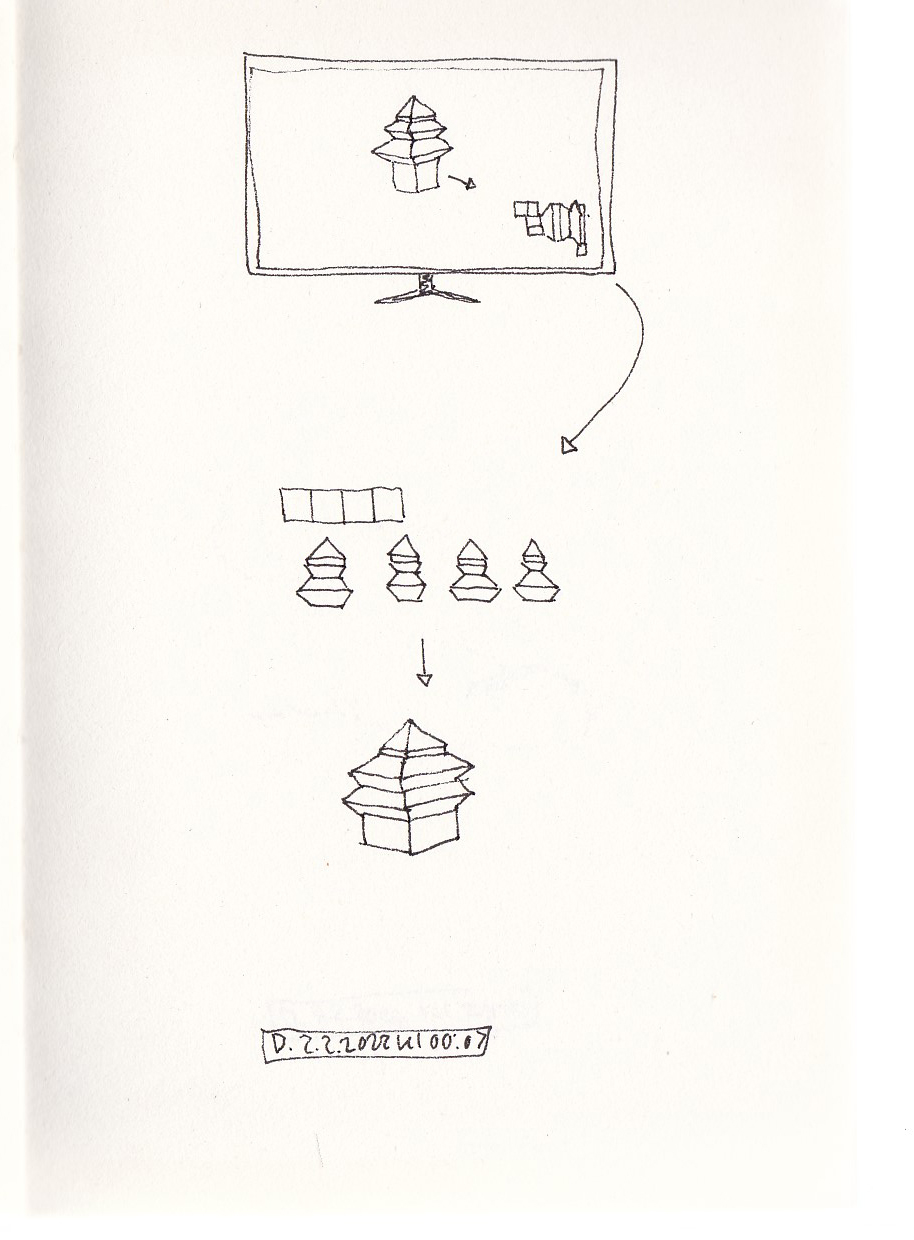 D. 2.2.2022 kl 00:07